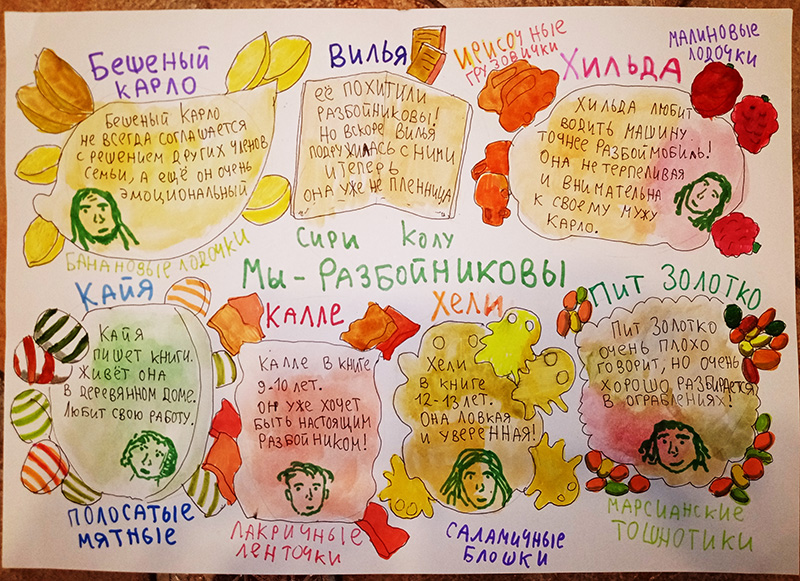 Бешеный
Карло
Бешеный Карло
не всегда соглашается
с решением других членов
семьи, а ещё он очень
эмоциональный
Банановые лодочки
Вилья
её похитили
разбойниковы!
Но вскоре Вилья
подружилась с ними
и теперь
она уже не пленница
Ирисочные
грузовички
Хильда
Малиновые
лодочки
Хильда любит
водить машину.
точнее разбоймобиль!
Она не терпеливая
и внимательна
к своему мужу
Карло.
Сири Колу
Мы - Разбойниковы
Кайя
Кайя
пишет книги.
Живёт она
в деревянном доме.
Любит свою работу.
Полосатые
мятные
Калле
Калле в книге
9-10 лет.
он уже хочет
быть настоящим
разбойником!
Лакричные
ленточки
Хели
Хели
в книге
12-13 лет.
Она ловкая
и уверенная!
Саламичные
блошки
Пит Золотко
Пит Золотко
очень плохо
говорит, но очень
хорошо разбирается
в ограблениях!
Марсианские
тошнотики